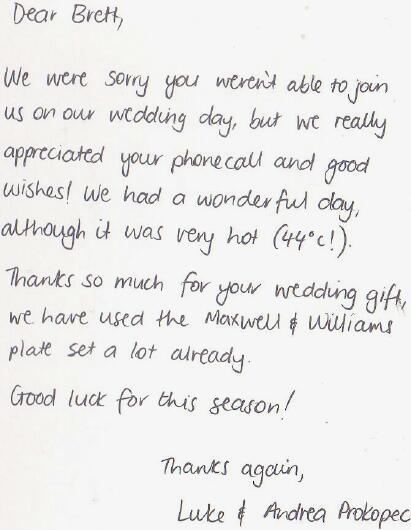 Dear Brett,
We were sorry you weren't able to join
us on our wedding day, but we really
appreciated your phonecall and good
wishes! We had a wonderful day,
although it was very hot (44°c!).
Thanks so much for your wedding gift,
we have used the Maxwell & Williams
plate set a lot already.
Good luck for this season!
Thanks again,
Luke & Andrea Prokopec